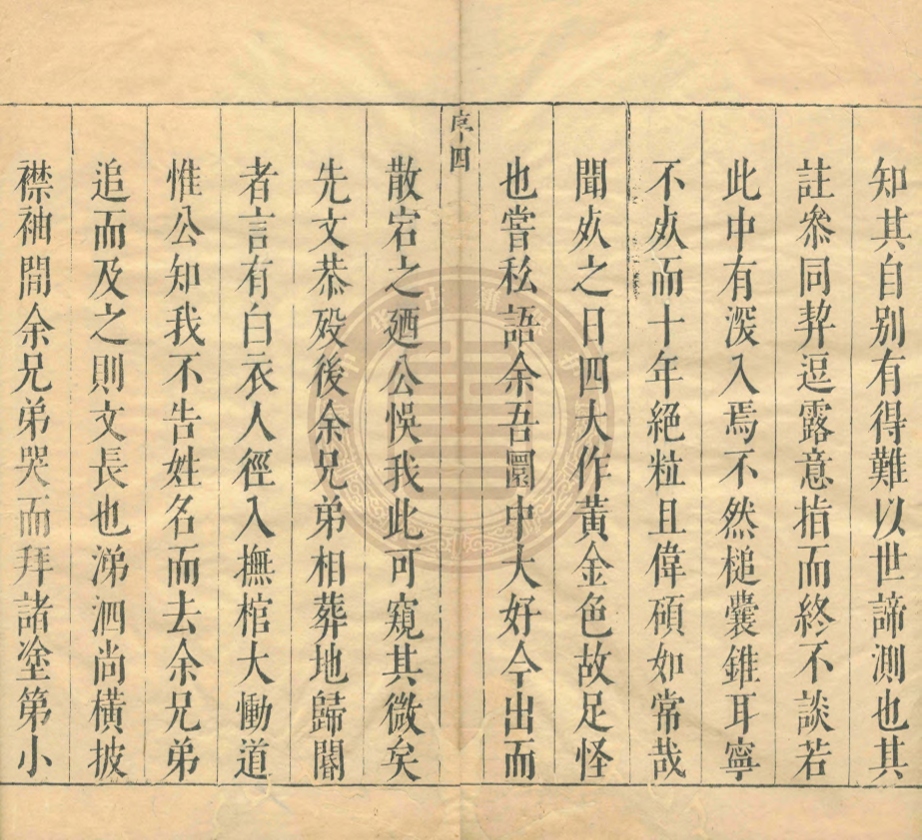 知其自别有得難以世諦測也其
註叅同契逗露意指而終不談若
此中有深入焉不然槌囊錐耳寧
不㱙而十年絕粒且偉碩如常哉
聞㱙之日四大作黃金色故足怪
也嘗私語余吾圜中大好今出而
序
四
散宕之廼公悞我此可窺其微矣
先文恭殁後余兄弟相葬地歸閽
者言有白衣人徑入撫棺大慟道
惟公知我不告姓名而去余兄弟
追而及之則文長也涕泗尚橫披
襟袖間余兄弟哭而拜諸塗第小